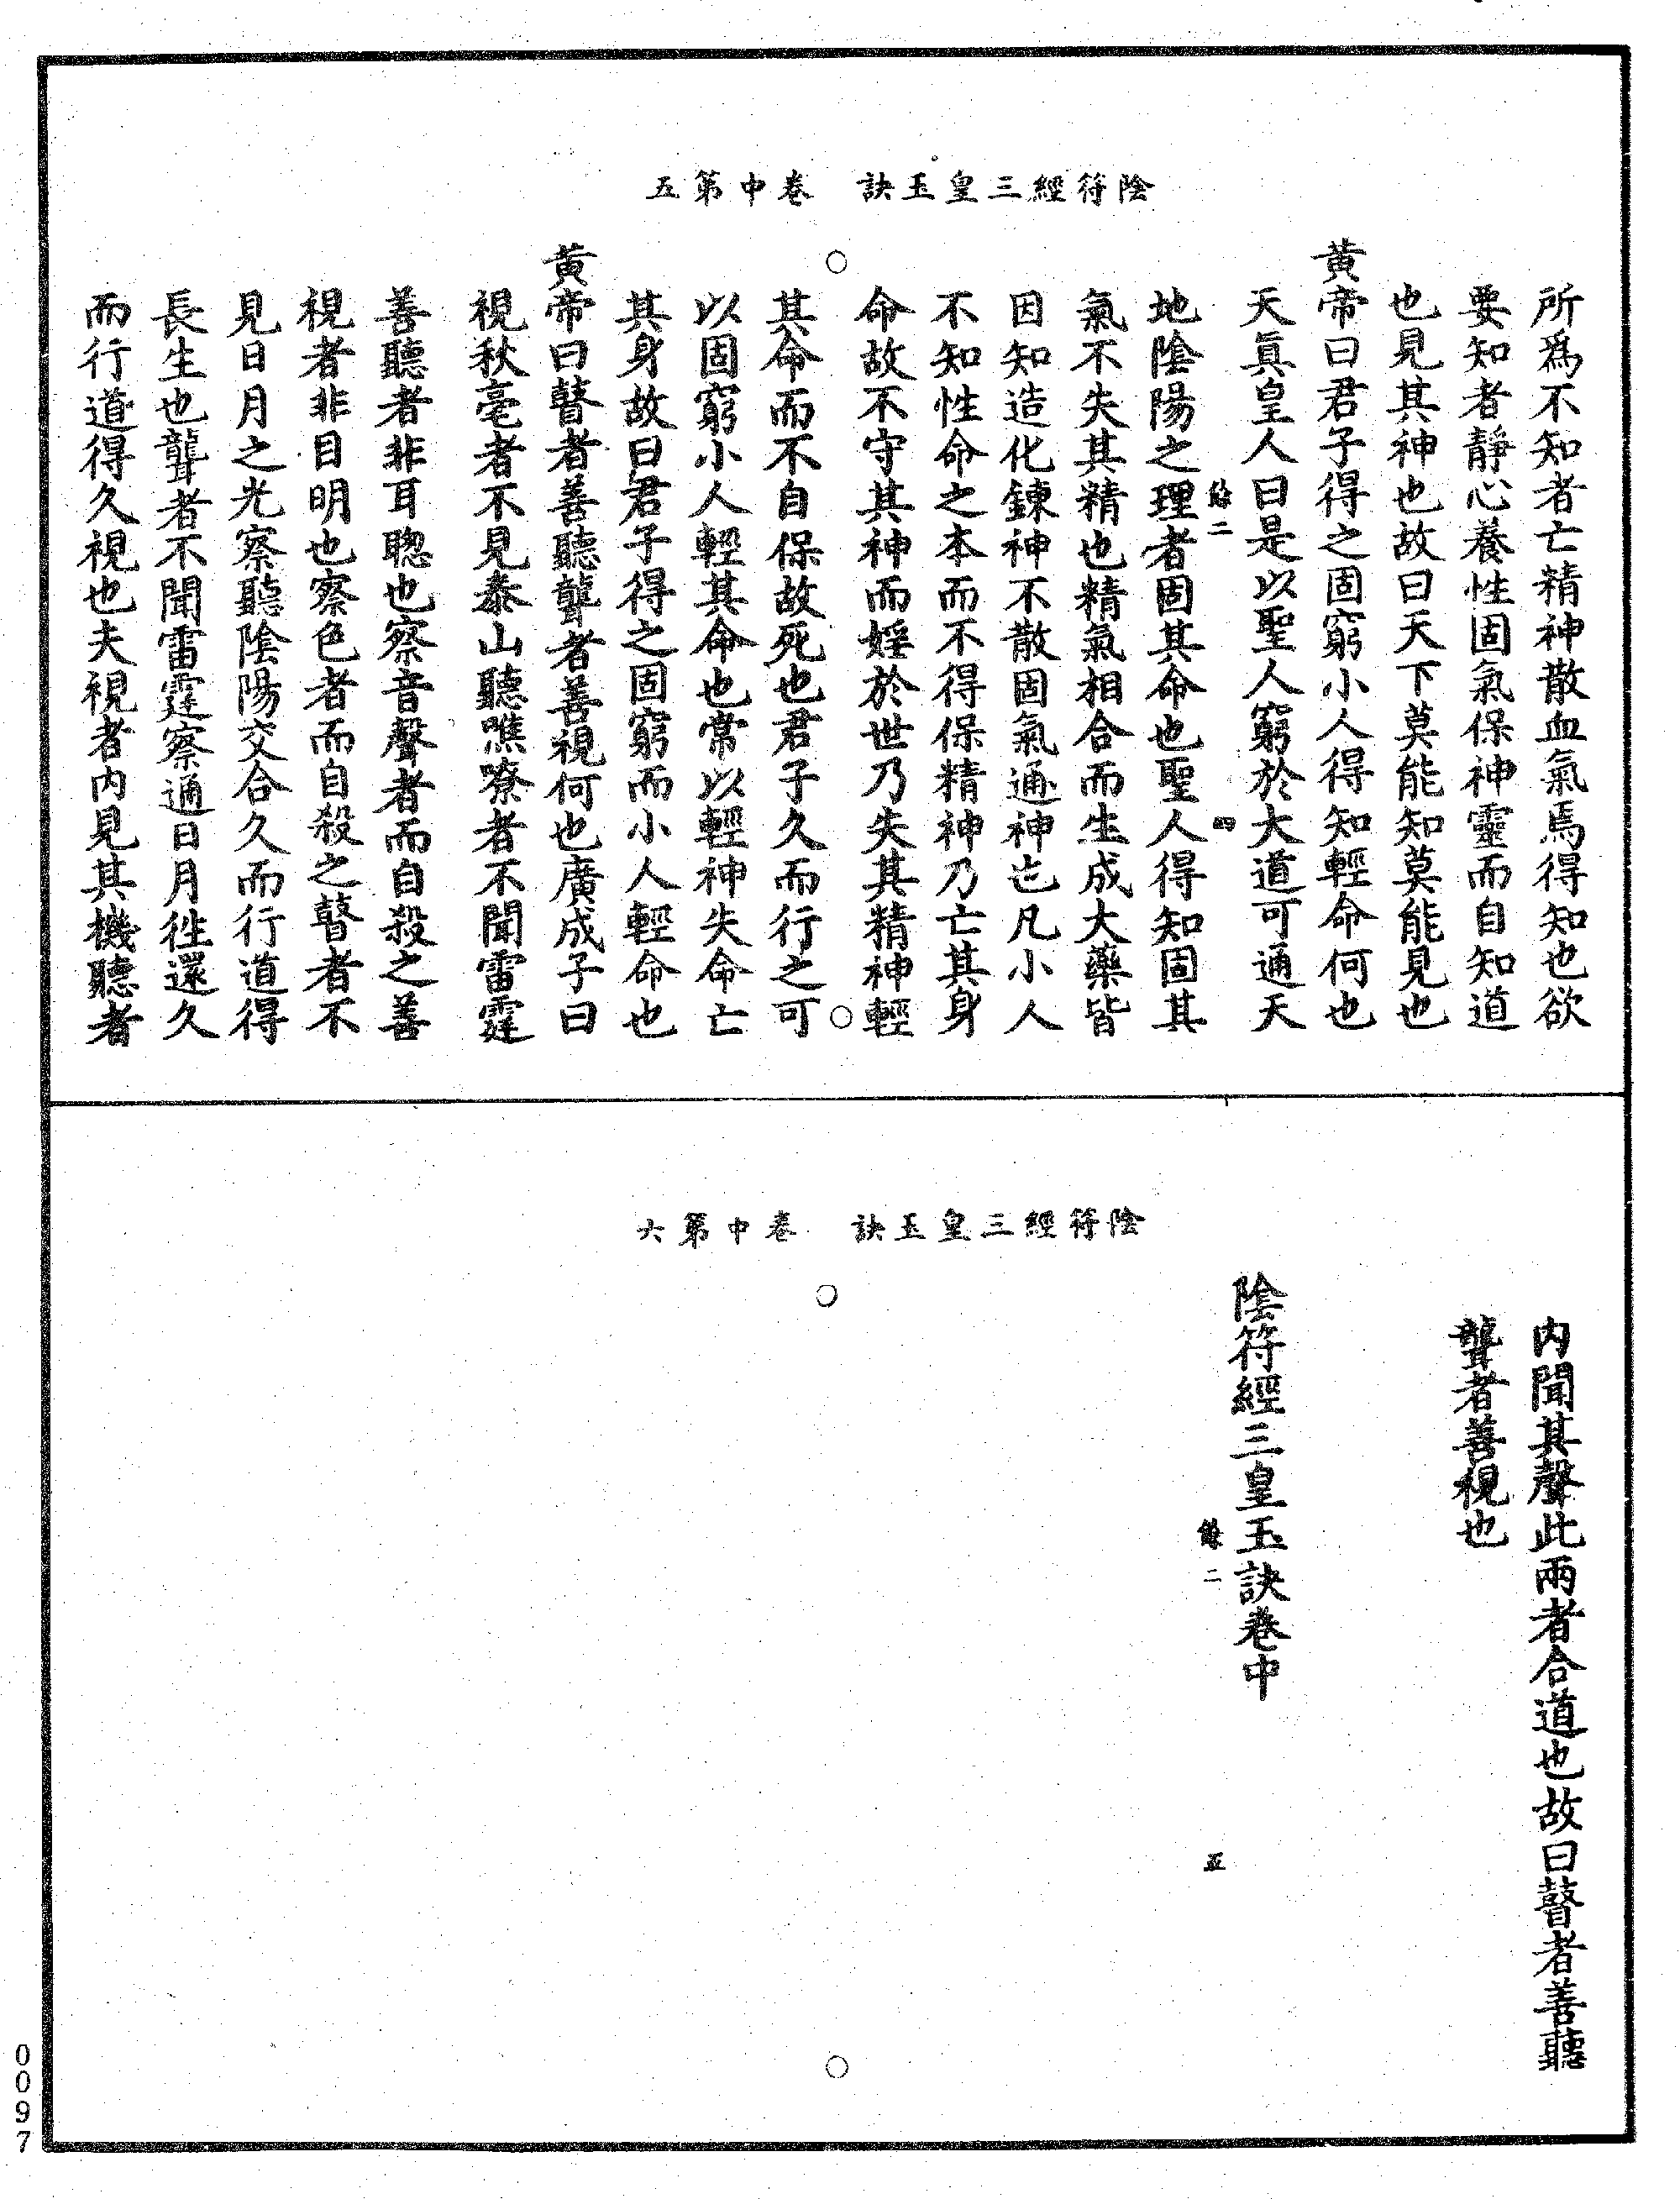 陰符經三皇玉訣　卷中第五
所爲不知者亡精神散血氣焉得知也欲
要知者靜心養性固氣保神靈而自知道
也見其神也故曰天下莫能知莫能見也
黃帝曰君子得之固窮小人得知輕命何也
天眞皇人曰是以聖人窮於大道可通天
餘二　四
地陰陽之理者固其命也聖人得知固其
氣不失其精也精氣相合而生成大藥皆
因知造化鍊神不散固氣通神也凡小人
不知性命之本而不得保精神乃亡其身
命故不守其神而婬於世乃失其精神輕
其命而不自保故死也君子久而行之可
以固窮小人輕其命也常以輕神失命亡
其身故曰君子得之固窮而小人輕命也
黃帝曰瞽者善聽聾者善視何也廣成子曰
視秋毫者不見泰山聽噍嘹者不聞雷霆
善聽者非耳聦也察音聲者而自殺之善
視者非目明也察色者而自殺之瞽者不
見日月之光察聽陰陽交合久而行道得
長生也聾者不聞雷霆察通日月徃還久
而行道得久視也夫視者内見其機聽者
陰符經三皇玉訣　卷中第六
内聞其聲此兩者合道也故曰瞽者善聽
聾者善視也
陰符經三皇玉訣卷中
餘二　五
0097